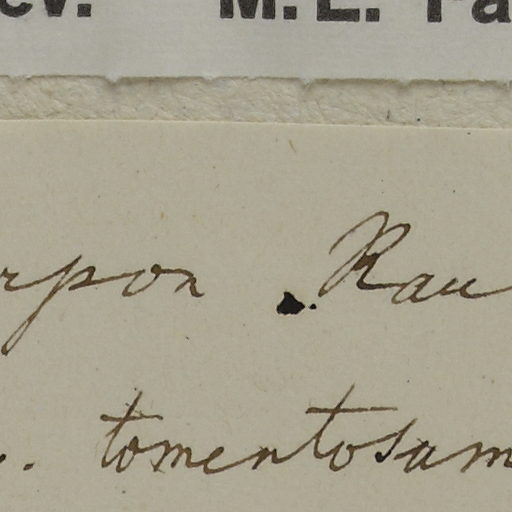 ev. M.L. Fa
rpon Rau
. tomentosam